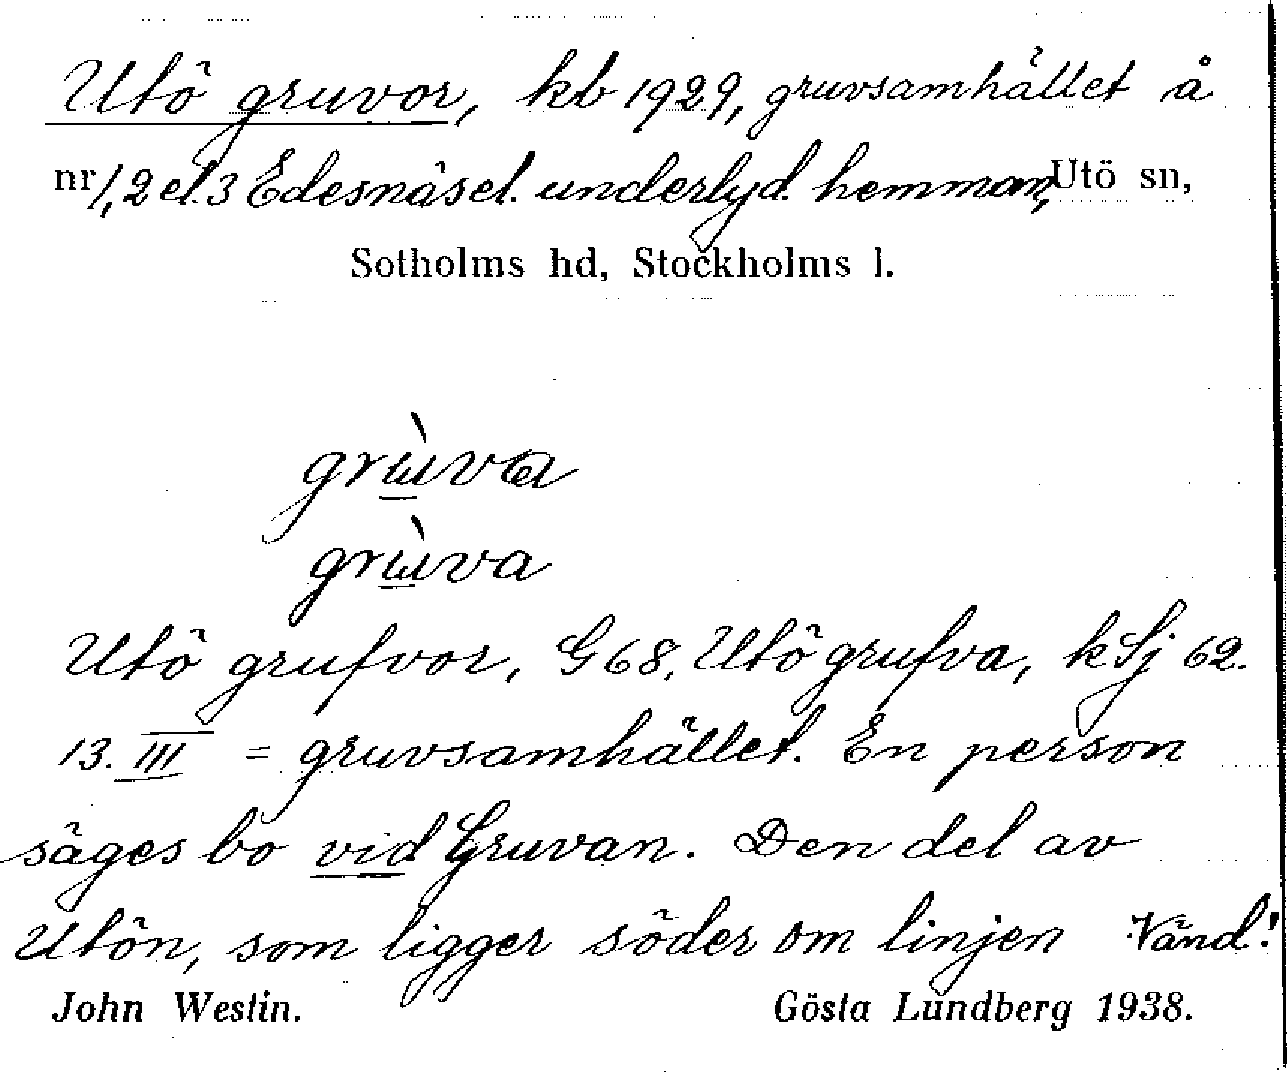 Utö gruvor, kb 1929, gruvsamhället å
nr 1, 2 el. 3 Edesnäsel. underlyd. hemman, Utö sn,
Sotholms hd, Stockholms l.
grùva
grùva
Utö grufvor, G 68, Utö grufva, kSj 62.
13. III = gruvsamhället. En person
säges bo vid Gruvan. Den del av
Utön, som ligger söder om linjen Vänd!
John Westin. Gösta Lundberg 1938.